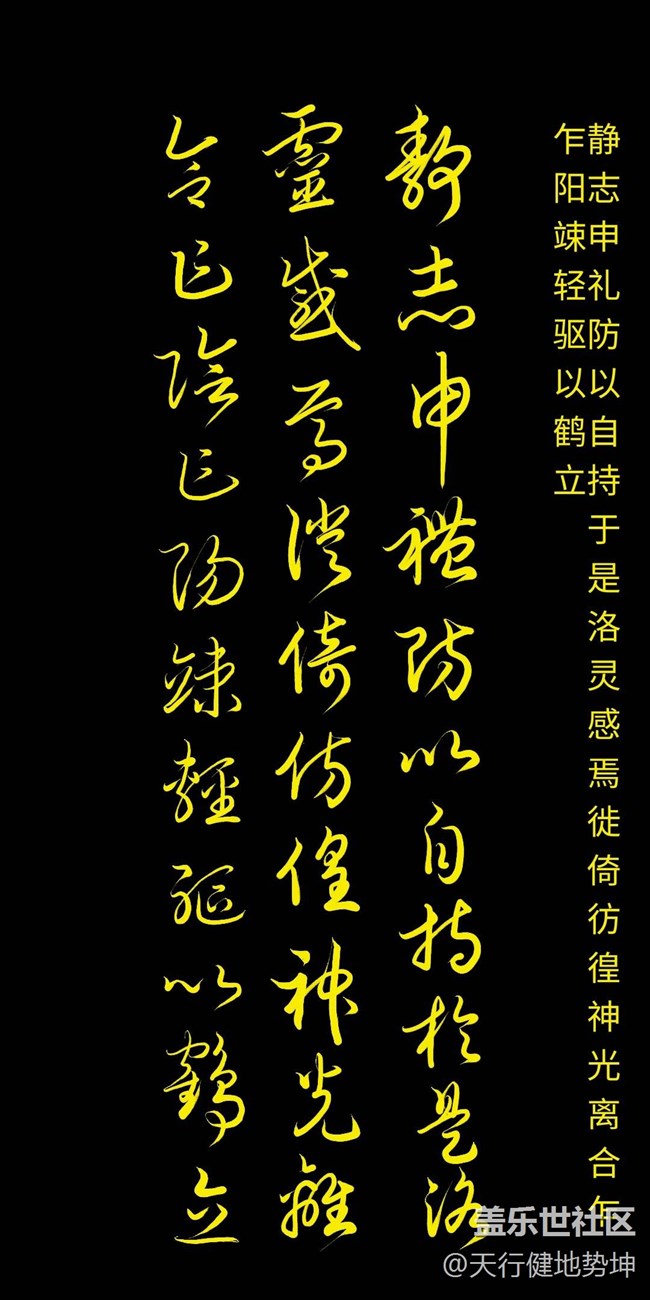 静志申礼防以自持于是洛灵感焉徙倚彷徨神光离合乍
乍阳竦轻驱以鹤立
靜志申禮防以自持於是洛
靈感焉徙倚彷徨神光離
合乍陰乍陽竦輕軀以鶴立
盖乐世社区
@天行健地势坤